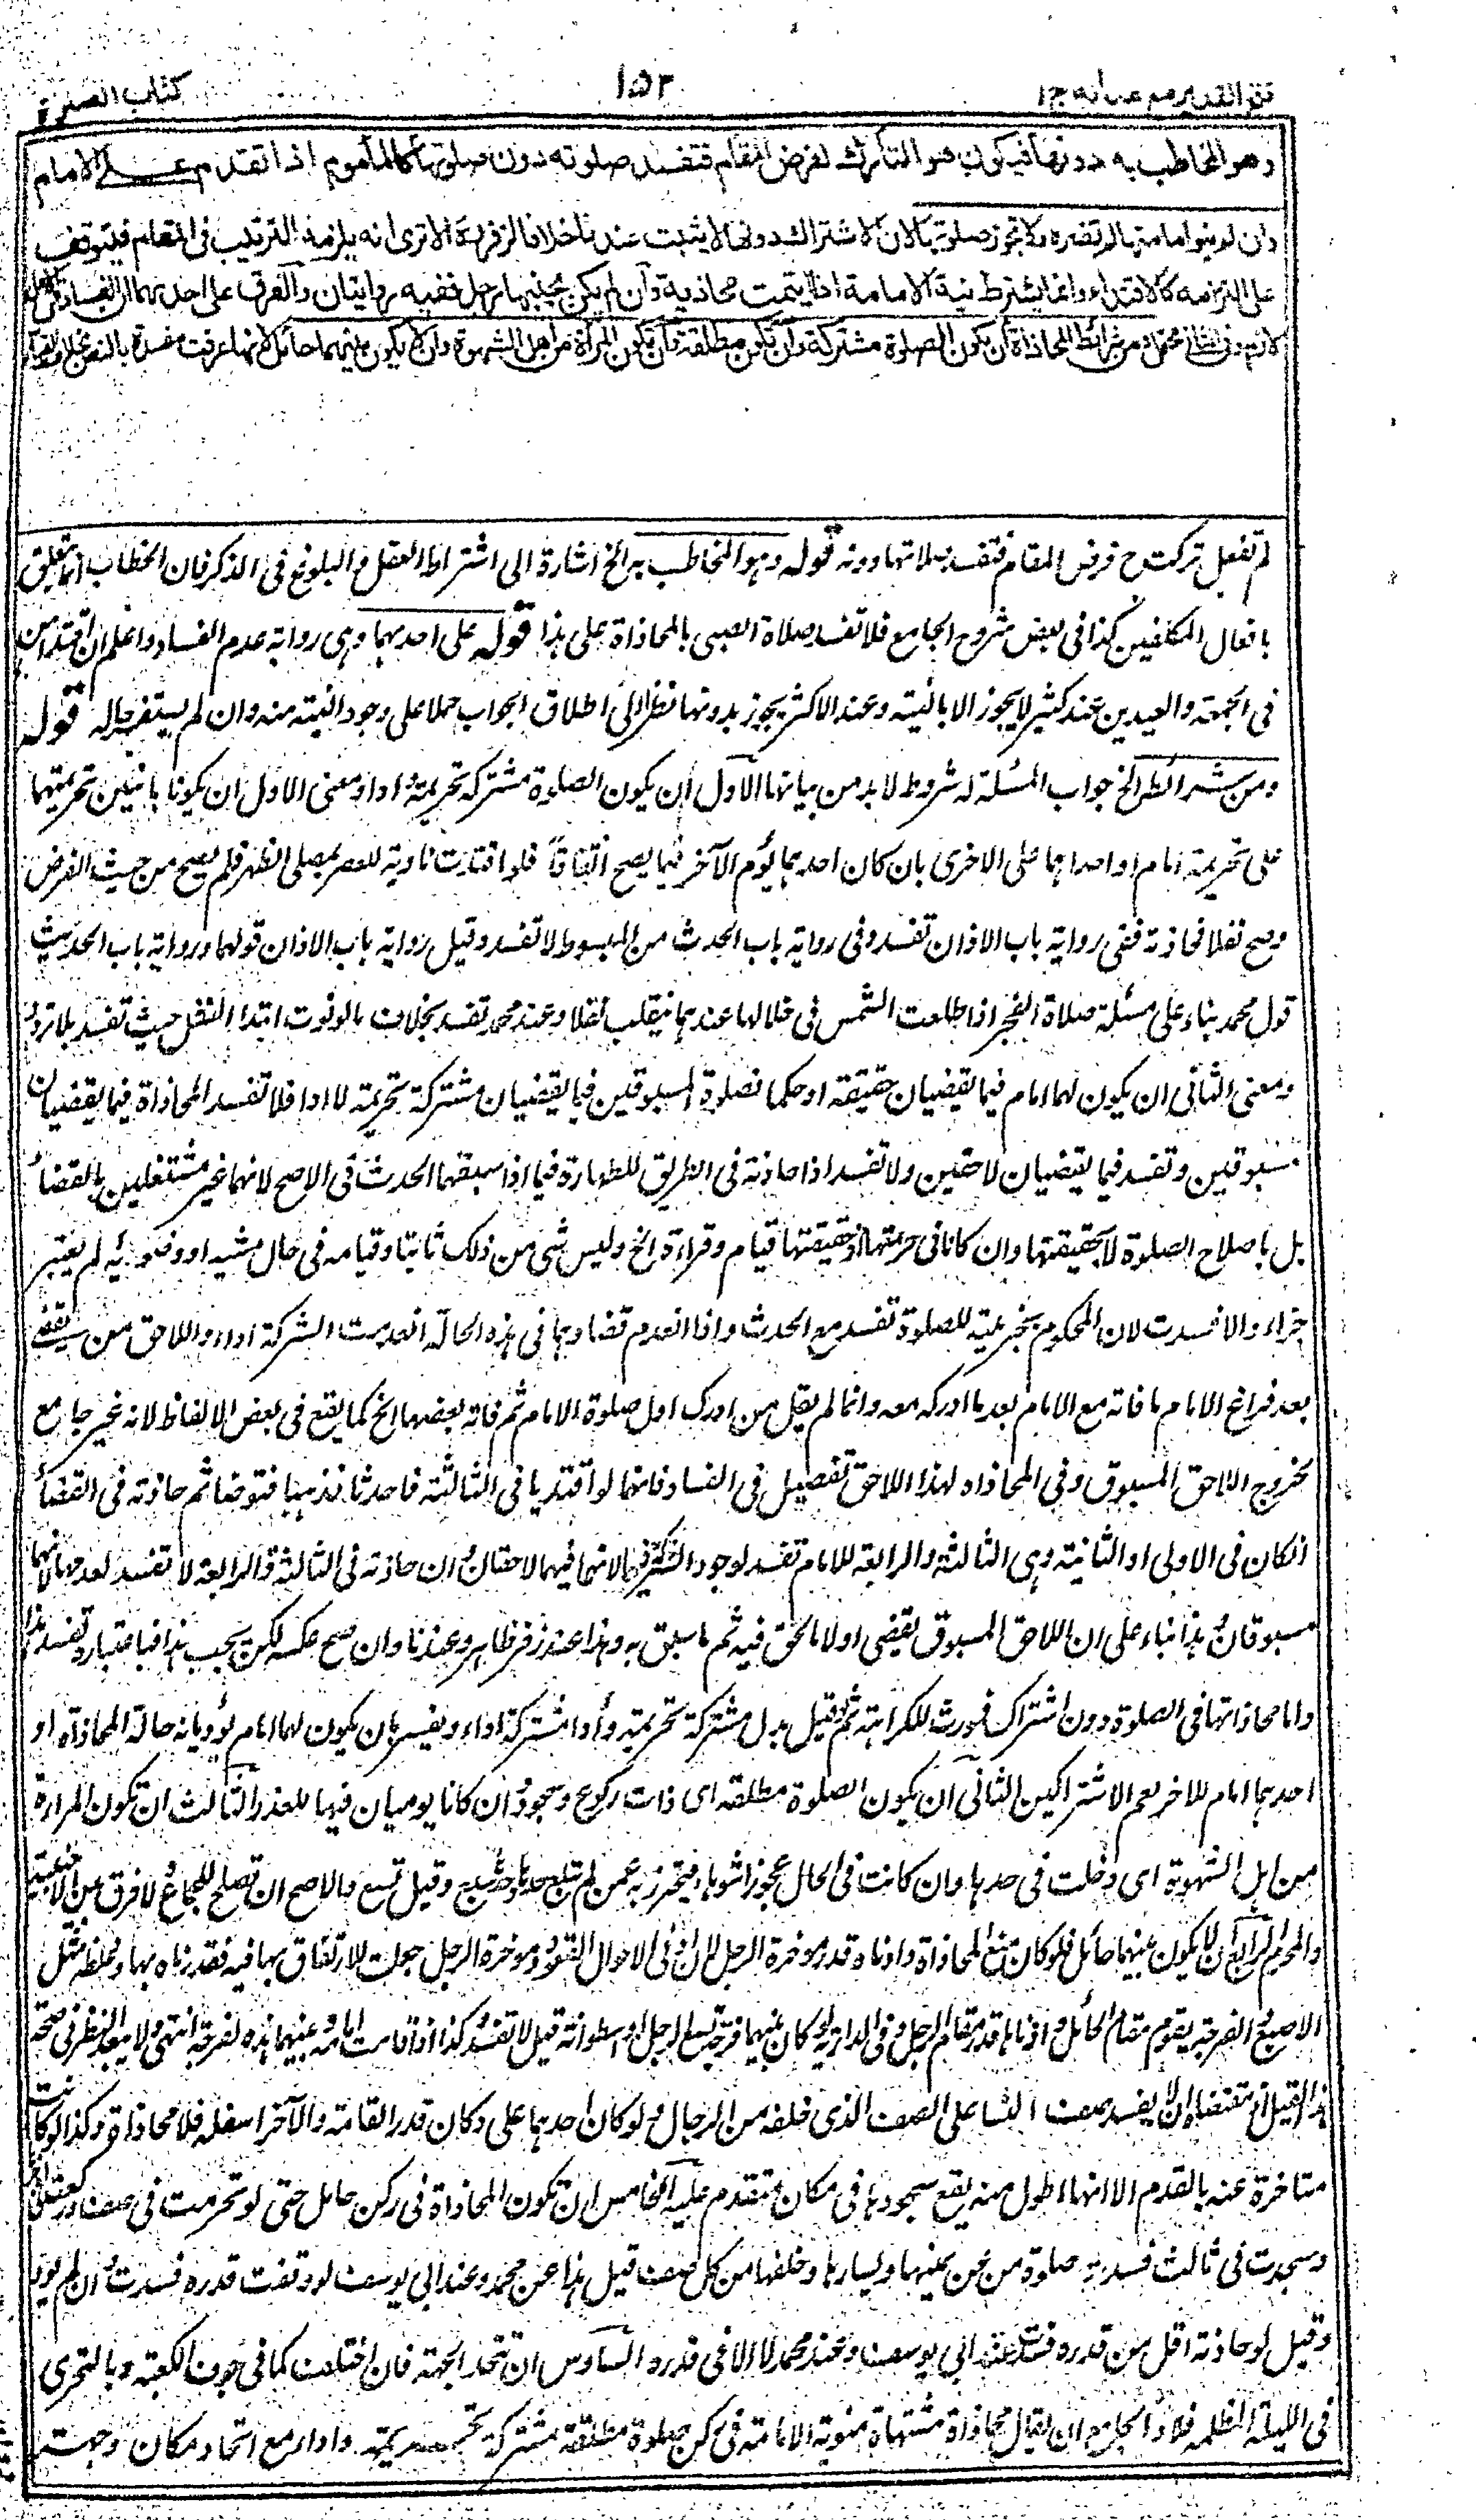 كتاب الصلوة
١٥٣
فتح القدير مع عنايه ج١
وهو المخاطب به دونها فيكون هو التارك لفرض المقام فتفسد صلوته دون صلوتها كالمأموم اذا تقدم على الامام
وان لم ينو امامتها لم تضره ولا تجوز صلوتها لان الاشتراك دونها لا يثبت عندنا خلافا لزفر الا ترى انه يلزمه الترتيب فى المقام فيتوقف
على التزامه كالاقتداء وانما يشترط نية الامامة اذا ايتمت محاذية وان لم يكن بجنبها رجل ففيه روايتان والفرق على احدهما ان الفساد فى الاول
لازم وفى الثانى محتمل ومن شرائط المحاذاة ان تكون الصلوة مشتركة وان تكون مطلقة وان تكون المرأة من اهل الشهوة وان لا يكون بينهما حائل لانها عرفت مفسدة بالنص بخلاف القياس
لم تفعل تركت ح فرض المقام فتفسد صلاتها دونه قوله وهو المخاطب به الخ اشارة الى اشتراط العقل والبلوغ فى الذكر فان الخطاب انما يتعلق
بافعال المكلفين كذا فى بعض شروح الجامع فلا تفسد صلاة الصبى بالمحاذاة على هذا قوله على احدهما وهى رواية عدم الفساد واعلم ان اقتداءهن
فى الجمعة والعيدين عند كثير لا يجوز الا بالنية وعند الاكثر يجوز بدونها نظرا الى اطلاق الجواب حملا على وجود النية منه وان لم يستفرحاله قوله
ومن شرائط الخ جواب المسئلة له شروط لابد من بيانها الاول ان يكون الصلوة مشتركة تحريمة واداء ومعنى الاول ان يكونا بانيين تحريمتهما
على تحريمة امام او احداهما على الاخرى بان كان احدهما يؤم الآخر فيما يصح اتفاقا فلو اقتدت ناوية للعصر بمصلى الظهر فلم يصح من حيث الفرض
وصح نفلا فحاذته ففى رواية باب الاذان تفسد وفى رواية باب الحدث من المبسوط لا تفسد وقيل رواية باب الاذان قولهما ورواية باب الحديث
قول محمد بناء على مسئلة صلاة الفجر اذا طلعت الشمس فى خلالها عندهما ينقلب نفلا وعند محمد تفسد بخلاف ما لو نوت ابتداء النفل حيث تفسد بلا تردد
ومعنى الثانى ان يكون لهما امام فيما يقضيان حقيقة او حكما فصلوة المسبوقين فيما يقضيان مشتركة تحريمة لا اداء فلا تفسد المحاذاة فيما يقضيان
مسبوقين وتفسد فيما يقضيان لاحقين ولا تفسد اذا حاذته فى الطريق للطهارة فيما اذا سبقهما الحدث فى الاصح لانهما غير مشتغلين بالقضاء
بل باصلاح الصلوة لا بحقيقتها وان كانا فى حرمتها اذ حقيقتها قيام وقراءة الخ وليس شئ من ذلك ثابتا وقيامه فى حال مشيه او وضوئه لم يعتبر
جزاء والا فسدت لان المحكوم بجزئيته للصلوة تفسد مع الحدث واذا انعدم قضاؤهما فى هذه الحالة انعدمت الشركة اداء واللاحق من يقضى
بعد فراغ الامام ما فاته مع الامام بعد ما ادركه معه وانما لم يقل من ادرك اول صلوة الامام ثم فاته بعضها الخ كما يقع فى بعض الالفاظ لانه غير جامع
بخروج اللاحق المسبوق وفى المحاذاة لهذا اللاحق تفصيل فى الفساد فانهما لو اقتديا فى الثالثة فاحدثا فذهبا فتوضا ثم حاذته فى القضاء
انكان فى الاولى او الثانية وهى الثالثة والرابعة للامام تفسد لوجود الشركة فيهما لانهما فيهما لاحقان وان حاذته فى الثالثة والرابعة لا تفسد لعدمها لانهما
مسبوقان وهذا بناء على ان اللاحق المسبوق يقضى اولا ما لحق فيه ثم ما سبق به وهذا عند زفر ظاهر وعندنا وان صح عكسه لكن يجب هذا فباعتباره تفسد هذا
واما محاذاتها فى الصلوة دون اشتراك فمورث للكراهة ثم لو قيل بدل مشتركة تحريمة واداء مشتركة اداء ويفسر بان يكون لهما امام يؤديانه حالة المحاذاة او
احدهما امام للاخر لعم الاشتراكين الثانى ان يكون الصلوة مطلقة اى ذات ركوع وسجود وان كانا يوميان فيها للعذر الثالث ان تكون المراءة
من اهل الشهوة اى دخلت فى حدها وان كانت فى الحال عجوزا شوهاء فيحترز به عمن لم تبلغ حدها وحده سبع وقيل تسع والاصح ان تصلح للجماع ولا فرق بين الاجنبية
والمحرم الرابع ان لا يكون بينهما حائل فلو كان منع المحاذاة وادناه قدر موخرة الرحل لان ادنى الاحوال القعود وموخرة الرحل جعلت للارتفاق بها فيه فقدرناه بها وغلظه مثل
الاصبع والفرجة يقوم مقام الحائل وادناها قدر مقام الرجل وفى الدراية لو كان بينهما فرجة تسع الرجل او اسطوانة قيل لا تفسد وكذا اذا قامت امامه وبينهما هذه الفرجة انتهى ولا يبعد النظر فى صحة
هذا القيل اذ مقتضاه ان لا يفسد صف النساء على الصف الذى خلفه من الرجال ولو كان احدهما على دكان قدر القامة والآخر اسفله فلا محاذاة وكذا لو كانت
متاخرة عنه بالقدم الا انها اطول منه يقع سجودها فى مكان متقدم عليه الخامس ان تكون المحاذاة فى ركن كامل حتى لو تحرمت فى صف وركعت فى اخر
وسجدت فى ثالث فسدت صلوة من عن يمينها ويسارها وخلفها من كل صف قيل هذا عن محمد وعند ابى يوسف لو وقفت قدره فسدت وان لم تؤد
وقيل لو حاذته اقل من قدره فسدت عند ابى يوسف وعند محمد لا الا فى قدره السادس ان تتحد الجهة فان اختلفت كما فى جوف الكعبة وبالتحرى
فى الليلة المظلمة فلا والجامع ان يقال محاذاة مشتهاة منوية الامامة فى ركن صلوة مطلقة مشتركة تحريمة واداء مع اتحاد مكان وجهة